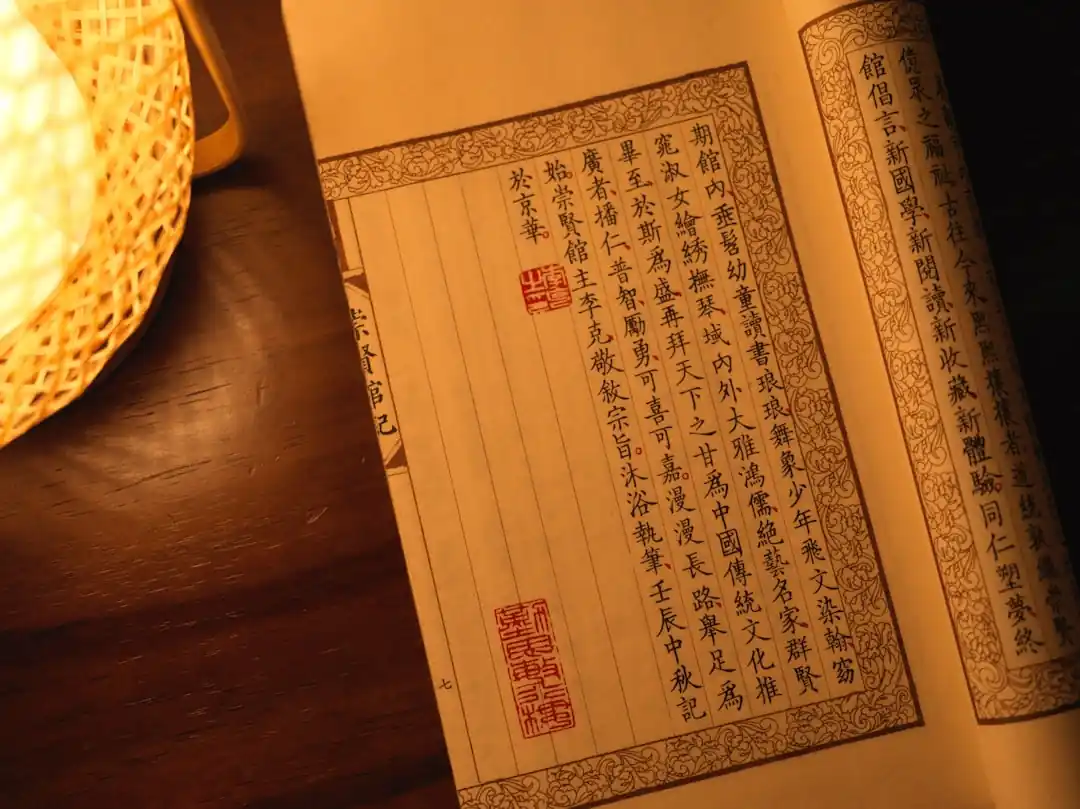 億衆之福祉古往今來熙熙攘攘者道統
館倡言、新國學、新閱讀、新收藏、新體驗。同仁塑夢終
期館內、垂髫幼童讀書琅琅、舞象少年飛文染翰、窈
窕淑女繪綉撫琴、域內外大雅鴻儒、絕藝名家、群賢
畢至、於斯為盛。再拜天下之甘為中國傳統文化推
廣者、播仁、普智、勵勇、可喜可嘉。漫漫長路、舉足為
始。崇賢館主李克敬敘宗旨。沐浴執筆、壬辰中秋記
於京華。
崇賢館記
七